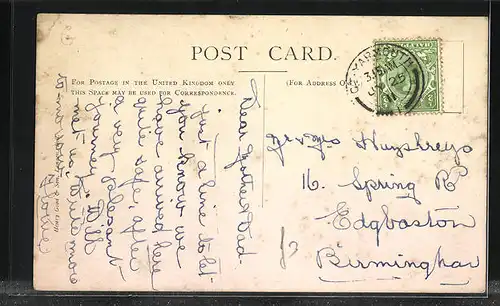 POST CARD.
FOR POSTAGE IN THE UNITED KINGDOM ONLY
THIS SPACE MAY BE USED FOR CORRESPONDENCE.
(FOR ADDRESS ON
YARMOUTH
Dear Mother & Dad-
Just a line to let
you know we
have arrived here
quite safe, after
a very pleasant
journey. Will
met us. Write more
to-morrow.
Humphreys
16. Spring Rd
Edgbaston
Birmingham